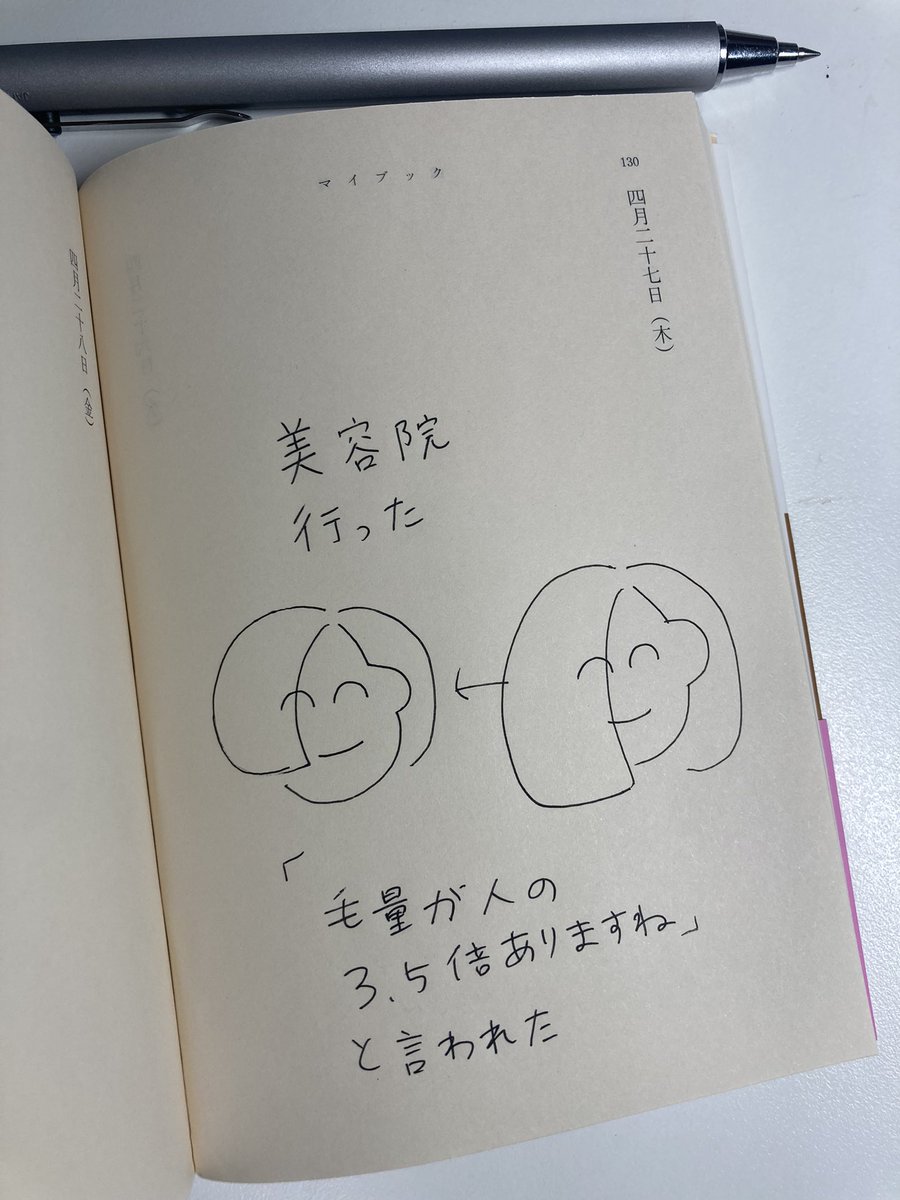 マイブック
130
四月二十七日（木）
美容院
行った
「毛量が人の
3.5倍ありますね」
と言われた
四月二十八日（金）